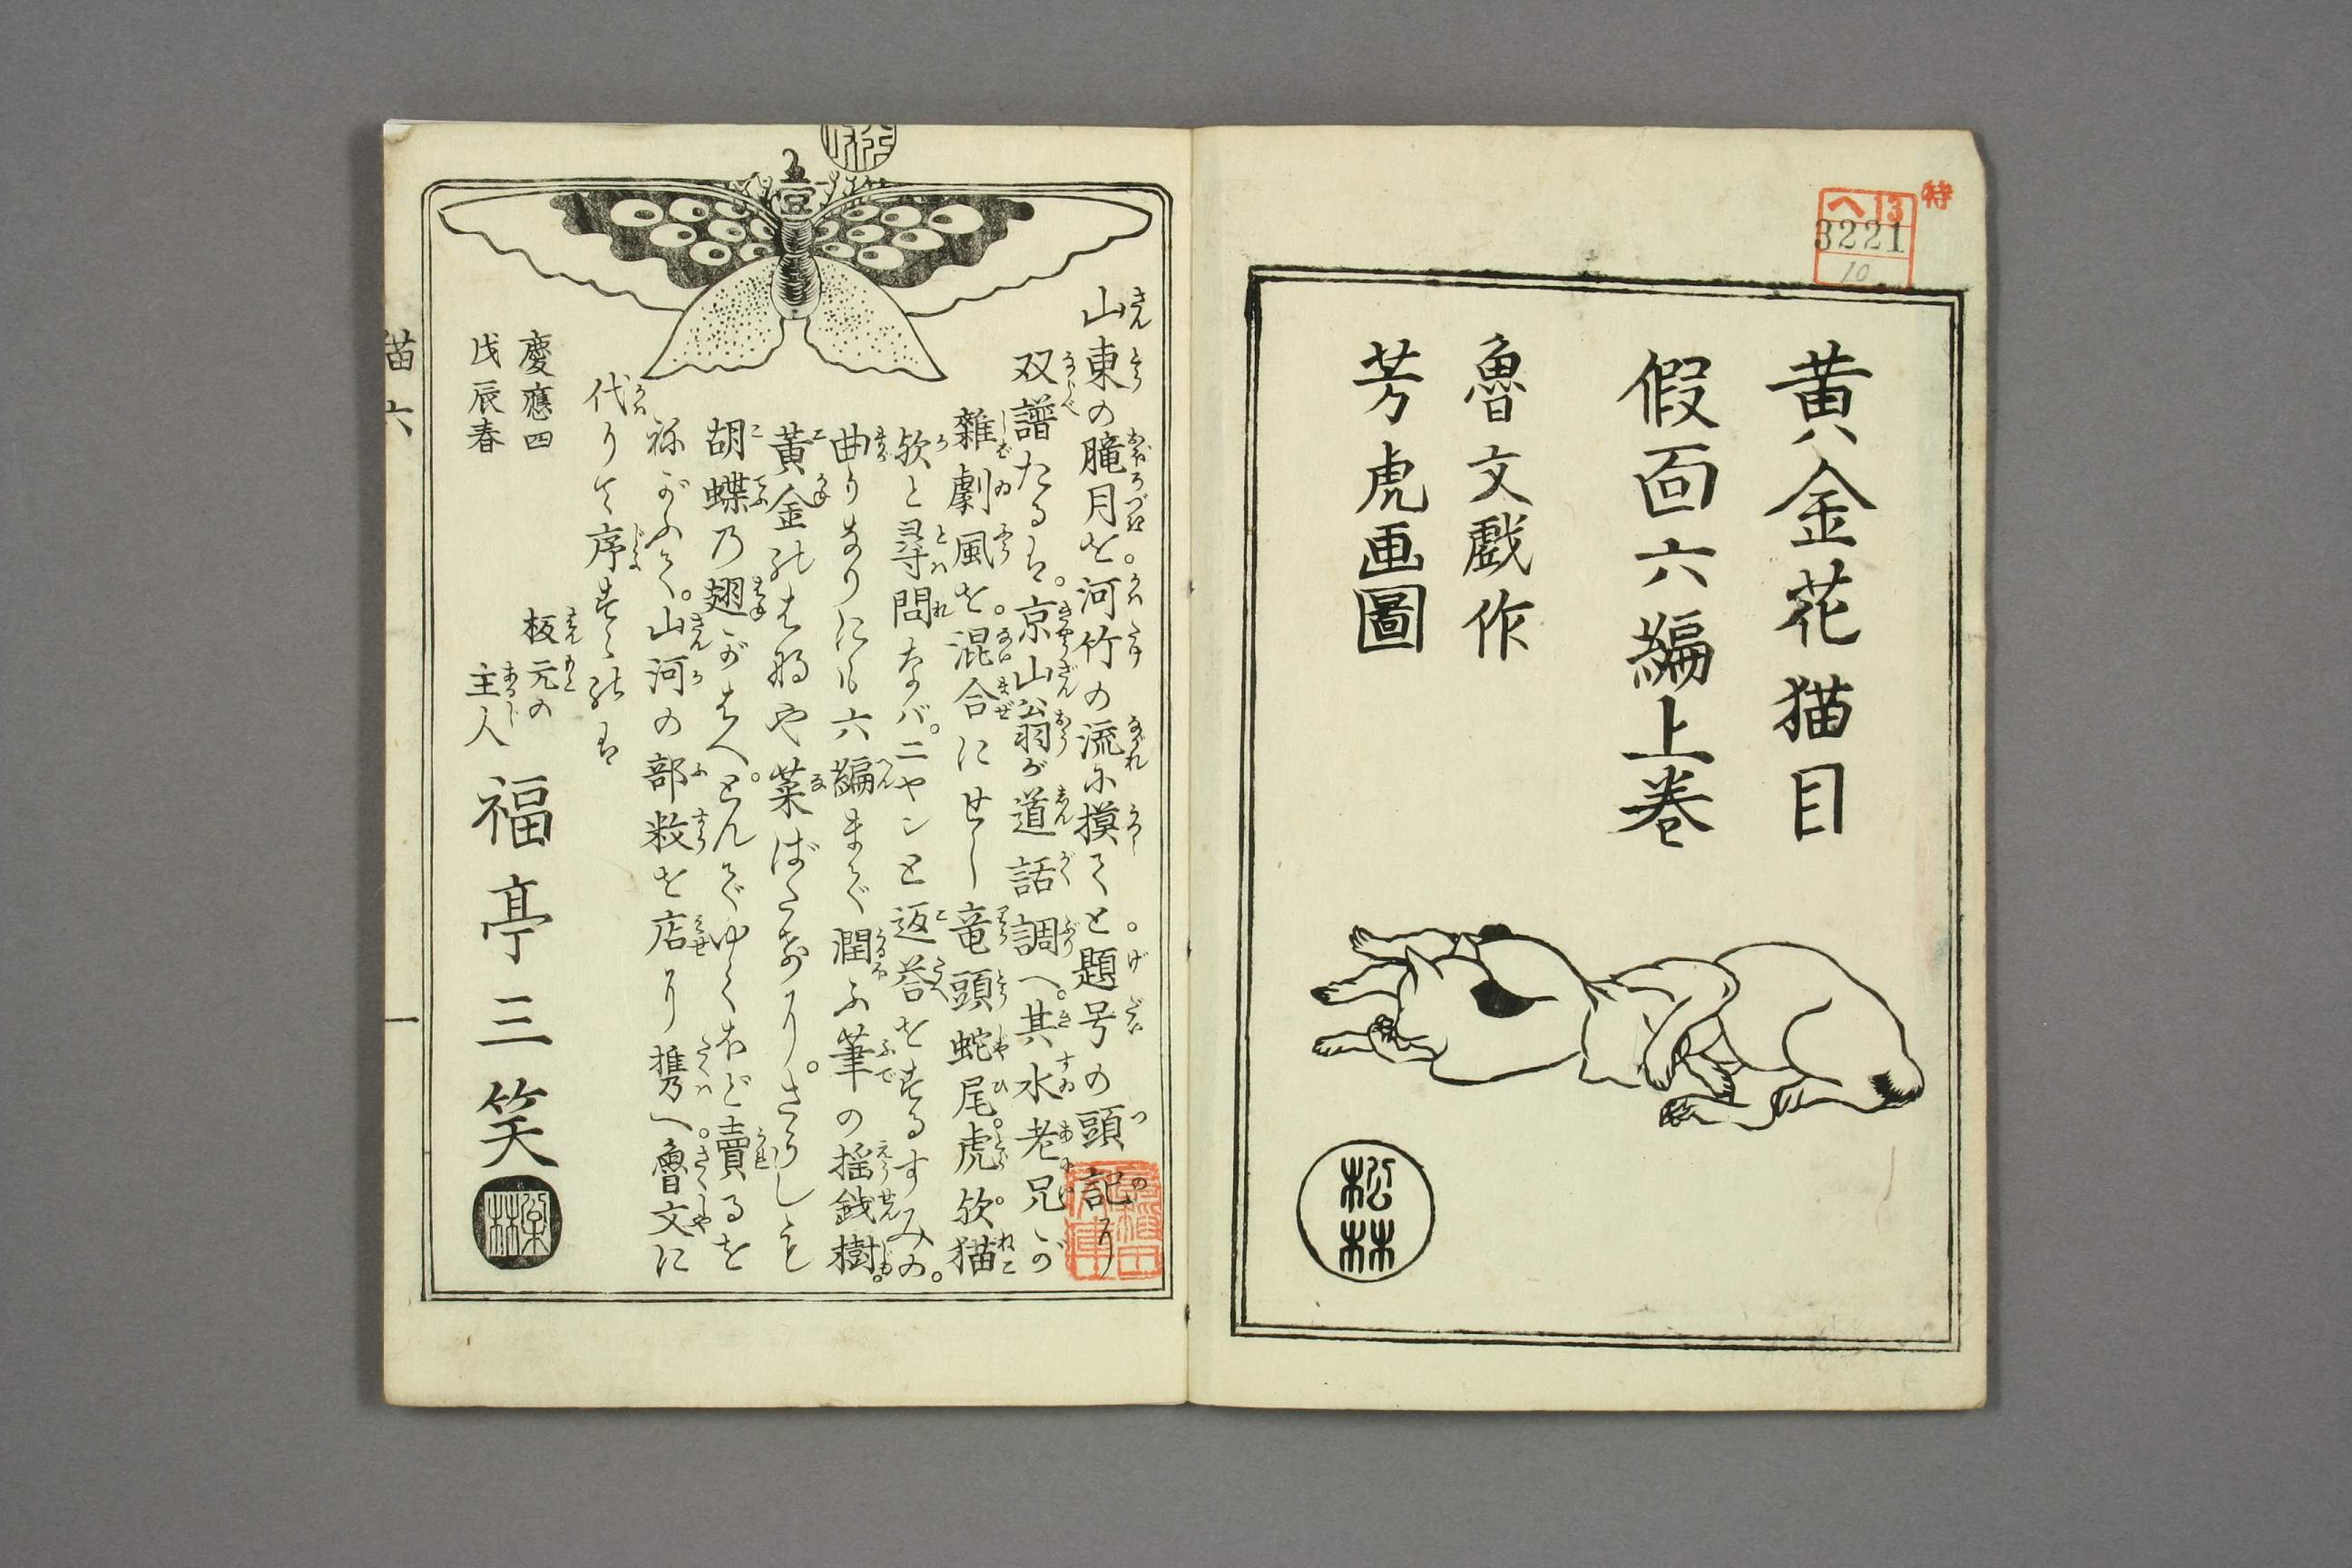 特
ヘ13
3221
10
黄金花猫目
假面六編上巻
魯文戯作
芳虎画圖
松林
山東の朧月を。河竹の流に摸して と。題号の頭記り
双譜たるは。京山翁が道話調へ。其水老兄が
雑劇風を。混合にせし竜頭蛇尾。虎欤。猫
欤と尋問なバ。ニヤンと返荅をするすみの。
曲りなりにも六編まで潤ふ筆の揺銭樹。
黄金のはねや菜ばたなり。さりしも
胡蝶乃翅がはへ。とんでゆくほど賣るを
祢がふて。山河の部数を店り携へ。魯文に
代りて序するのは
慶應四
戊辰春
板元の
主人
福亭三笑
猫六
一